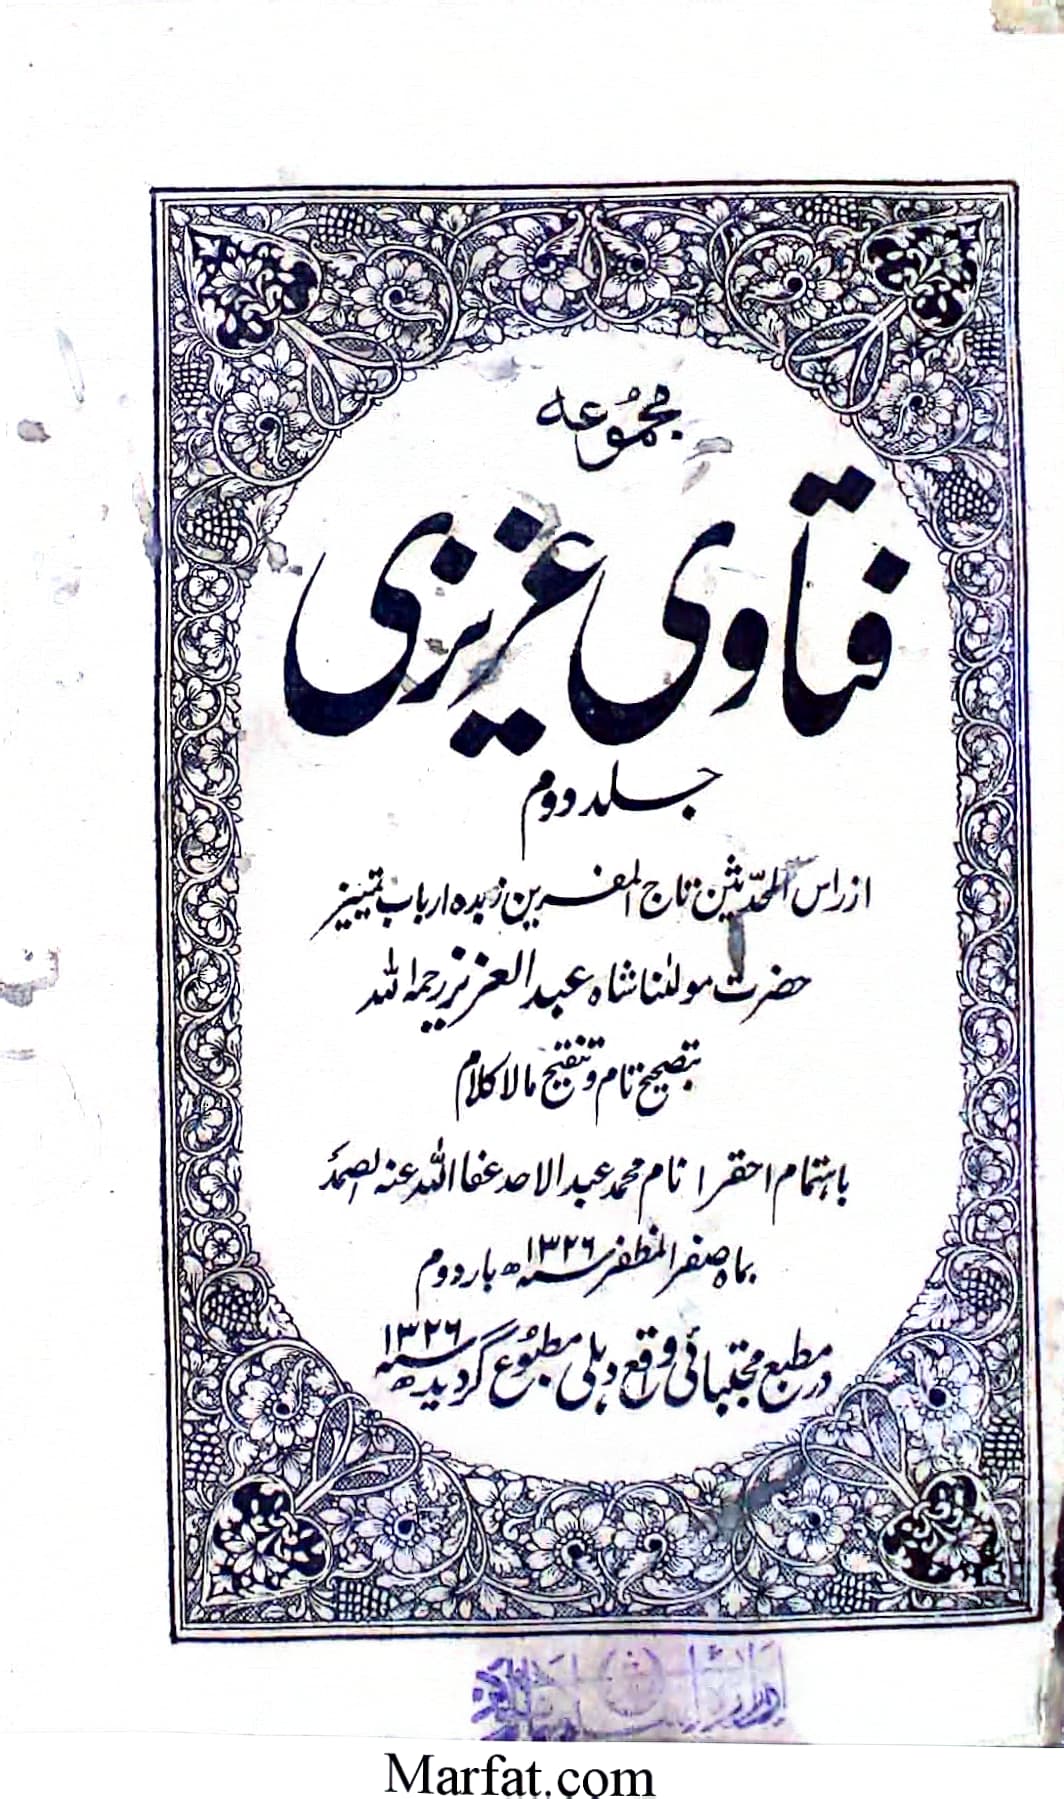 مجموعه
فتاوی عزیزی
جلد دوم
از راس المحدثین تاج المفسرین زبده ارباب تمییز
حضرت مولٰنا شاه عبد العزیز رحمہ اللہ
بتصحیح تام و تنقیح مالا کلام
باہتمام احقر انام محمد عبد الاحد عفا اللہ عنہ الصمد
بماہ صفر المظفر سنہ ۱۳۲۶ ھ بار دوم
در مطبع مجتبائی واقع دہلی مطبوع گردید سنہ ۱۳۲۶ ھ
Marfat.com